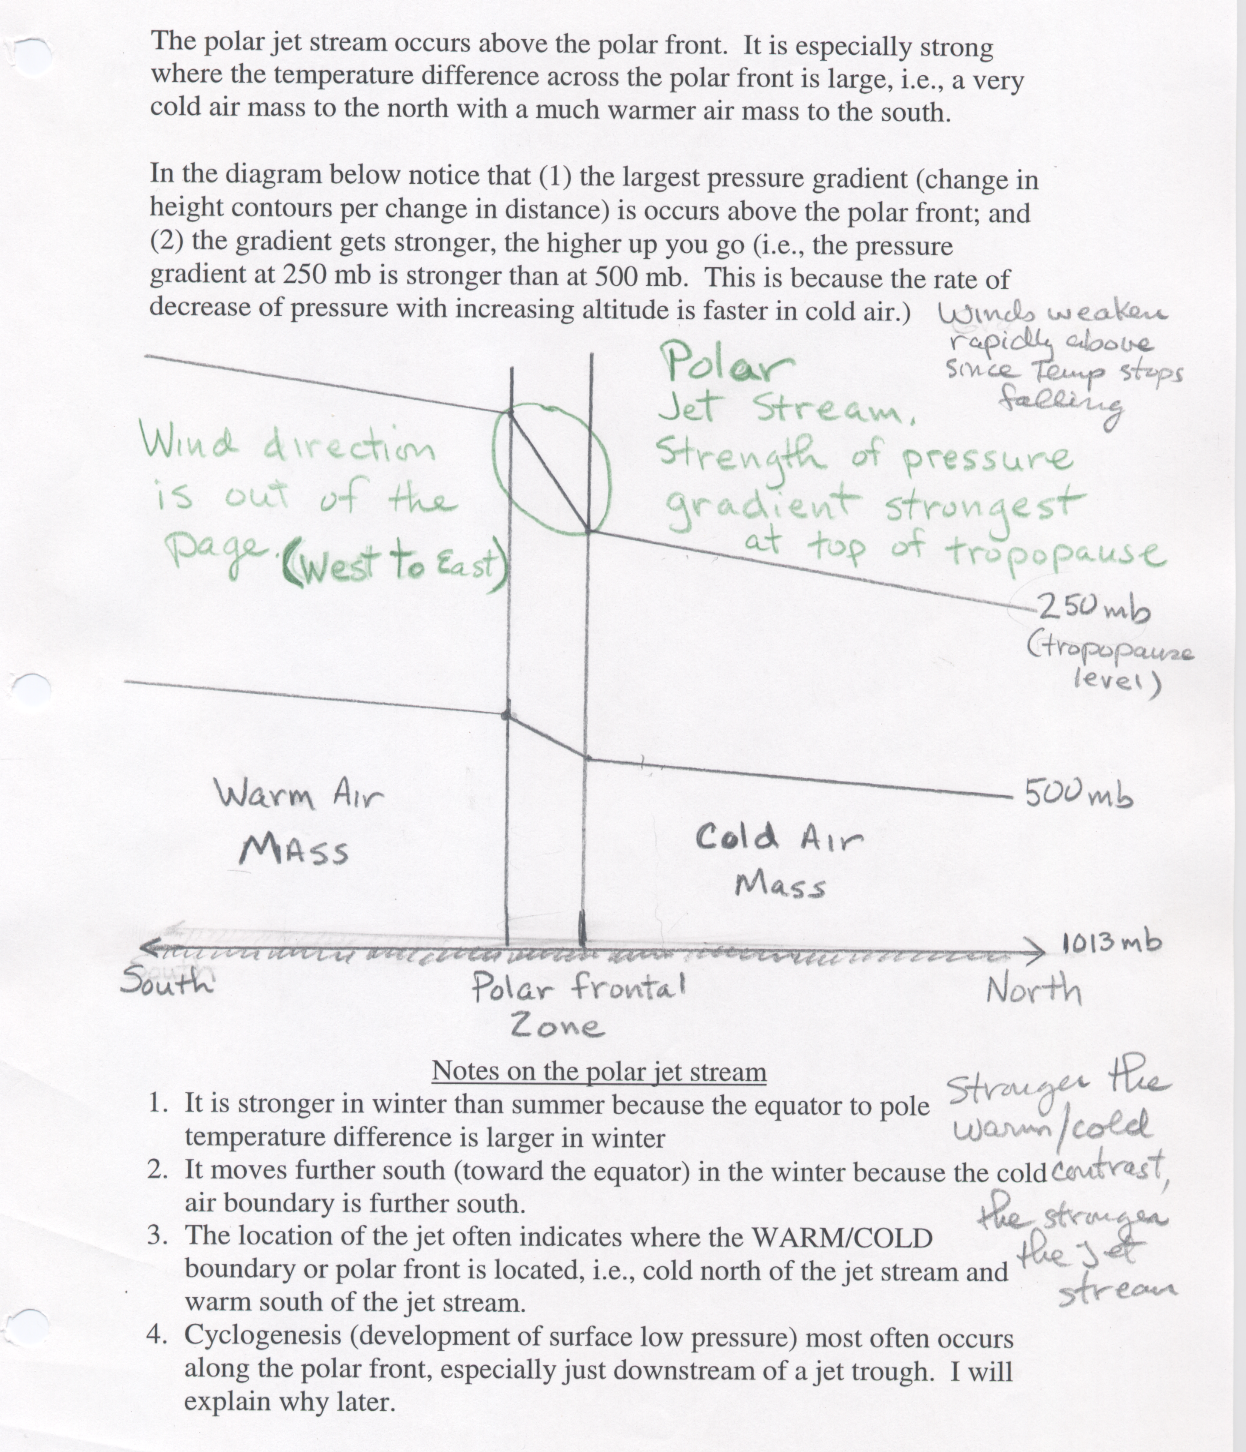 The polar jet stream occurs above the polar front.  It is especially strong
where the temperature difference across the polar front is large, i.e., a very
cold air mass to the north with a much warmer air mass to the south.
In the diagram below notice that (1) the largest pressure gradient (change in
height contours per change in distance) is occurs above the polar front; and
(2) the gradient gets stronger, the higher up you go (i.e., the pressure
gradient at 250 mb is stronger than at 500 mb.  This is because the rate of
decrease of pressure with increasing altitude is faster in cold air.)
Winds weaken
rapidly above
since Temp stops
falling
Polar
Jet Stream.
Strength of pressure
gradient strongest
at top of tropopause
Wind direction
is out of the
page. (West to East)
250 mb
(tropopause
level)
500 mb
Warm Air
Mass
Cold Air
Mass
1013 mb
South
Polar frontal
Zone
North
Notes on the polar jet stream
1. It is stronger in winter than summer because the equator to pole
temperature difference is larger in winter
2. It moves further south (toward the equator) in the winter because the cold
air boundary is further south.
3. The location of the jet often indicates where the WARM/COLD
boundary or polar front is located, i.e., cold north of the jet stream and
warm south of the jet stream.
4. Cyclogenesis (development of surface low pressure) most often occurs
along the polar front, especially just downstream of a jet trough.  I will
explain why later.
Stronger the
warm/cold
contrast,
the stronger
the jet
stream